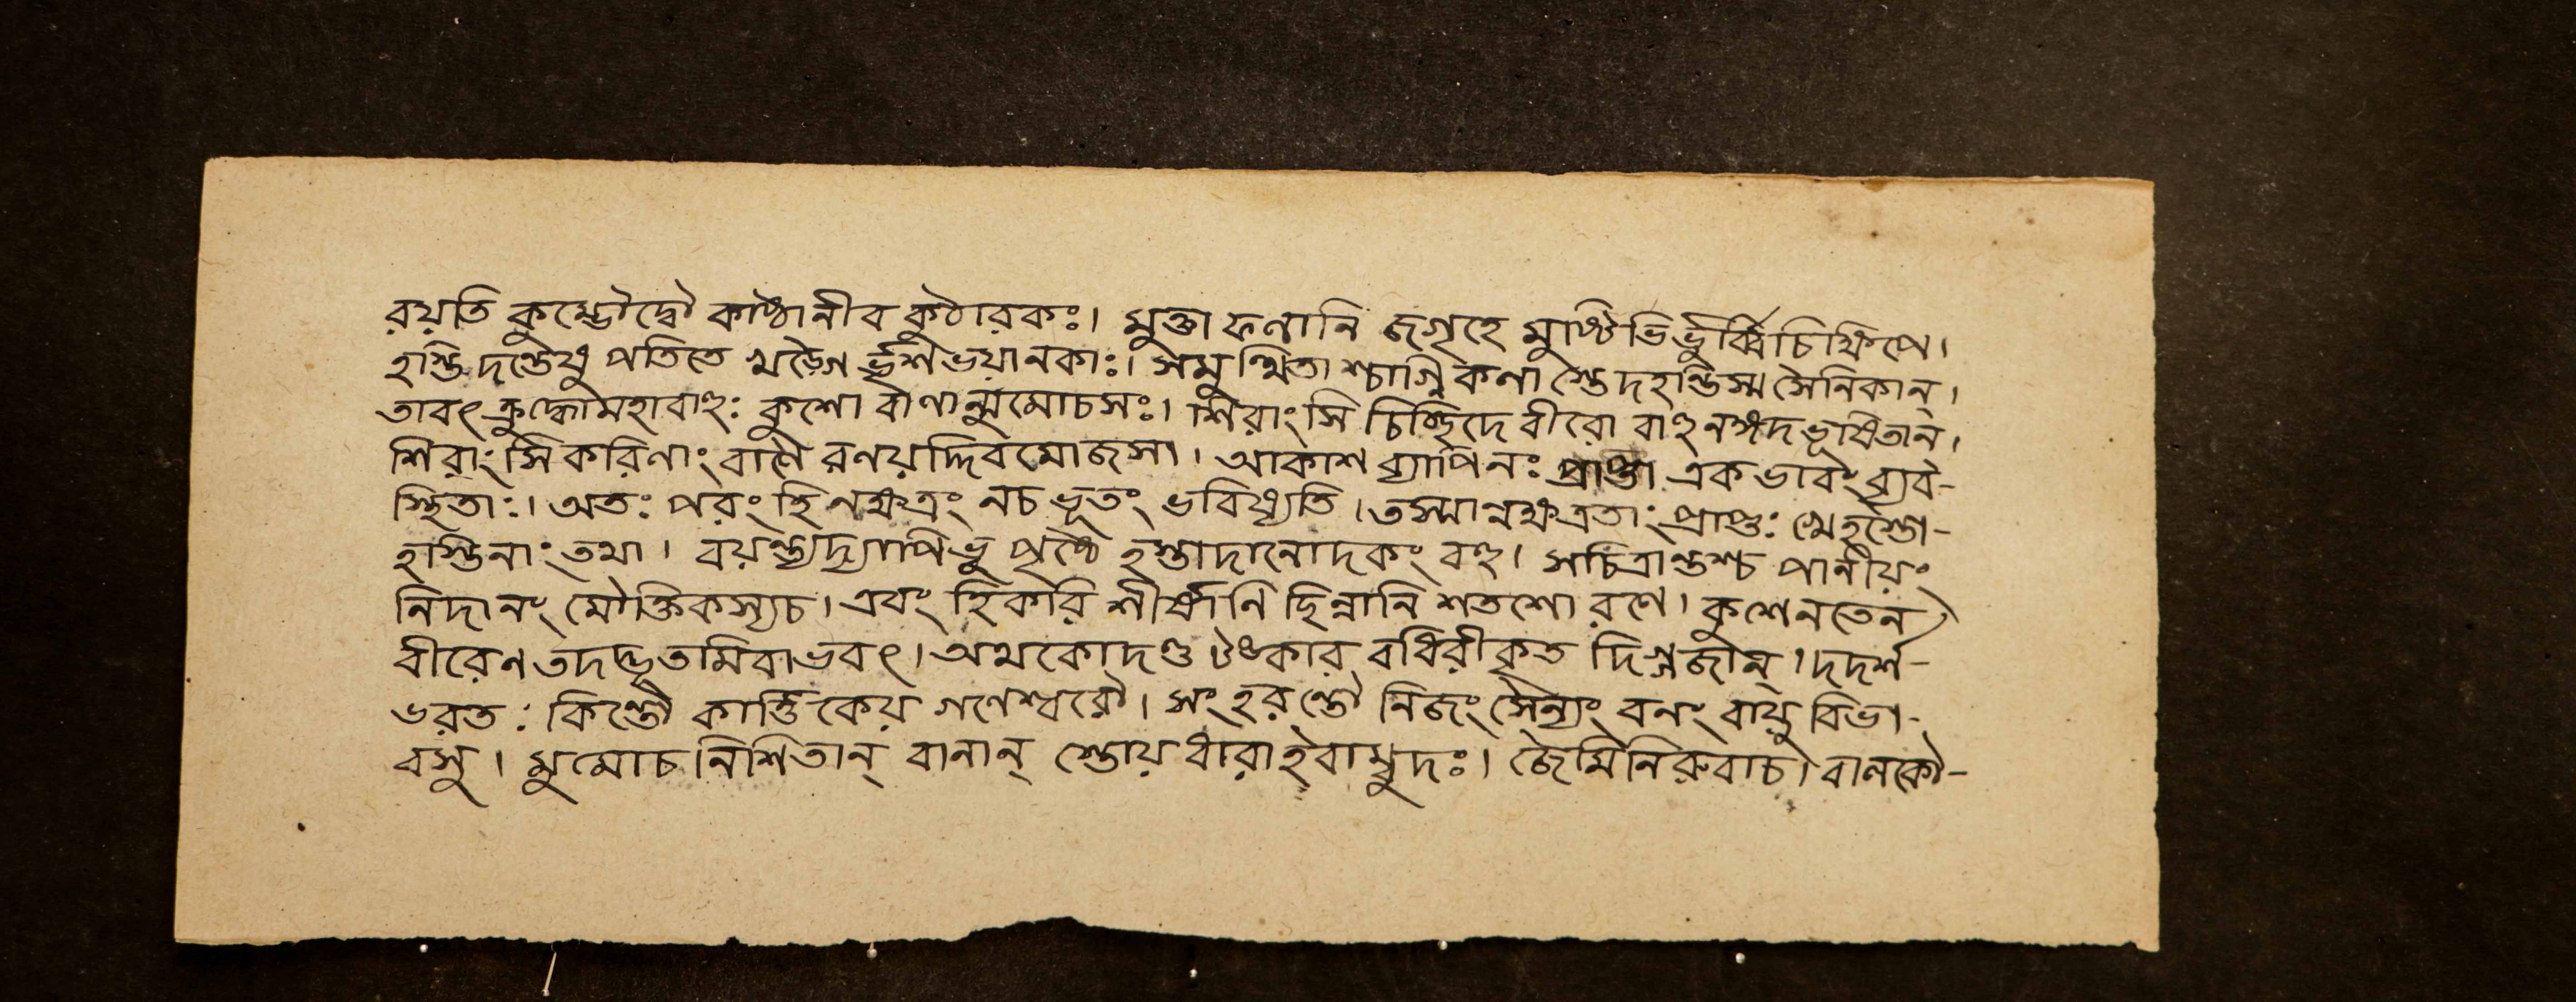 রয়তি কুম্ভৌদ্বৌ কাষ্ঠানীব কুঠারকঃ। মুক্তা ফলানি জগৃহে মুষ্টিভির্ভুবি চিক্ষিপে।
হস্তি দন্তেষু পতিতে খড়্গৈ র্ভৃশভয়ানকাঃ। সমুত্থিতা শ্চাগ্নিকণা স্তৈ দহন্তিস্ম সৈনিকান্।
তাবৎ ক্রুদ্ধোমহাবাহুঃ কুশো বাণান্মুমোচসঃ। শিরাংসি চিচ্ছিদে বীরো বাহুনঙ্গদভূষিতান।
শিরাংসি করিণাং বাণৈ রনয়দ্দিবমোজসা। আকাশ ব্যাপিনঃ প্রাপ্তা একভাবং ব্যব-
স্থিতাঃ। অতঃ পরং হি নক্ষত্রং নচ ভূতং ভবিষ্যতি। তস্মান্নক্ষত্রতাং প্রাপ্তুঃ
হস্তিনাং তথা। বয়ন্ত্বদ্যাপিভু পৃষ্ঠে হস্তাদানোদকং বহু। পানীয়ং
নিদানং মৌক্তিকস্যচ। এবং হি করি শীর্ষাণি ছিন্নানি শতশো রণে। কুশেনতেন
বীরেণ তদদ্ভুতমিবাভবৎ। অথকোদণ্ড টঙ্কার বধিরীকৃত দিগ্গজান্। দদর্শ-
ভরতঃ কিন্তৌ কার্ত্তিকেয় গণেশ্বরৌ। সংহরন্তৌ নিজং সৈন্যং বনং বায়ু বিভা-
বসু। মুমোচ নিশিতান্ বানান্ স্তোয় ধারাইবাম্বুদঃ। জৈমিনিরুবাচ। বানকৌ-